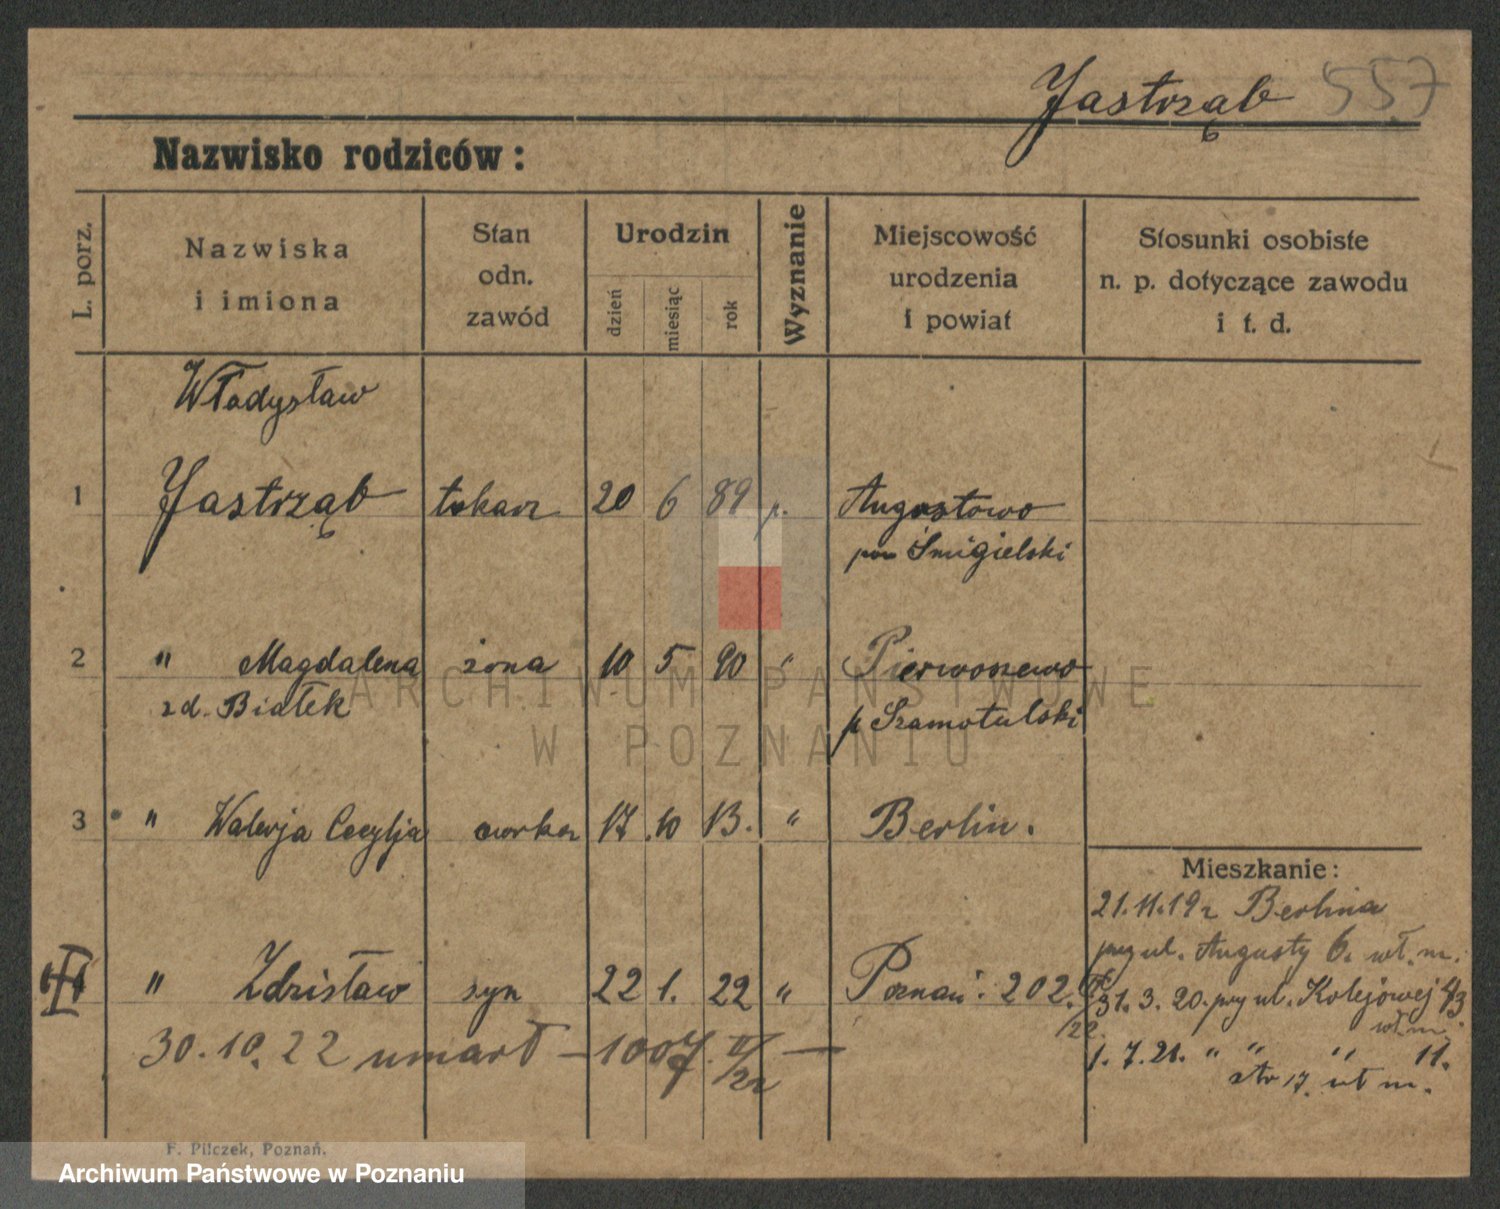 Jastrząb 557
Nazwisko rodziców:
L. porz.
Nazwiska
i imiona
Stan
odn.
zawód
Urodzin
dzień
miesiąc
rok
Wyznanie
Miejscowość
urodzenia
i powiat
Stosunki osobiste
n. p. dotyczące zawodu
i t. d.
Władysław
1 Jastrząb tokarz 20 6 89 p. Augustowo
pow Śmigielski
2 " Magdalena żona 10 5 90 " Pierwoszewo
z d. Białek p Szamotulski
3 " Walerja Cecylja córka 17 10 13. " Berlin.
Mieszkanie:
21.11.19 z Berlina
przy ul. Augusty 6. wł. m.
" Zdzisław syn 22 1. 22 " Poznań: 202.
/22.
31.3.20. przy ul. Kolejowej 43
wł. m.
30.10.22 umarł — 1007. II/22 —
1.7.21. " " " 11.
str 17 wł m.
F. Pilczek, Poznań.
ARCHIWUM PAŃSTWOWE
W POZNANIU
Archiwum Państwowe w Poznaniu